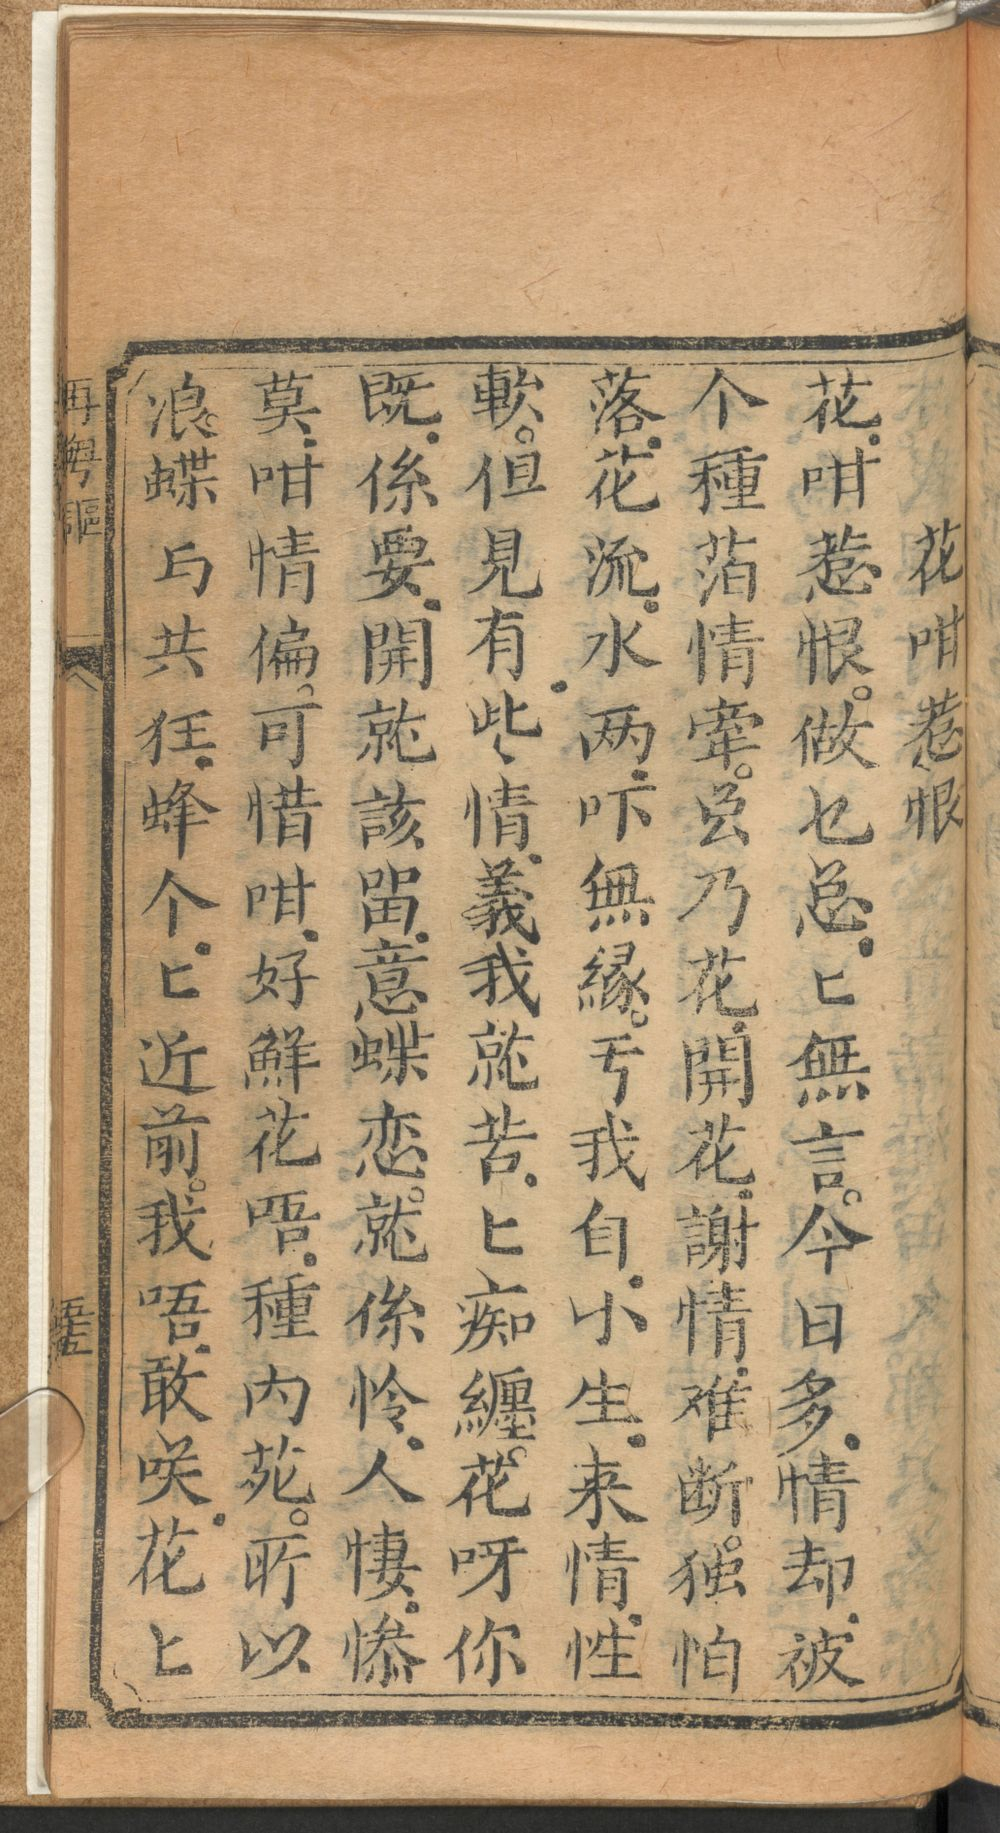 花咁惹恨
花咁惹恨。做乜怱匕無言。今日多情却被
个種箔情牽。㒷乃花開花謝情难断。独怕
落花流水两吓無緣。亐我自小生来情性
軟。但見有些情義我就苦匕痴纏。花呀你
既係要開就該畱意蝶恋。就係怜人悽慘
莫咁情偏。可惜咁好鮮花唔種内苑。所以
浪蝶与共狂蜂个匕近前。我唔敢咲花匕
再粤謳